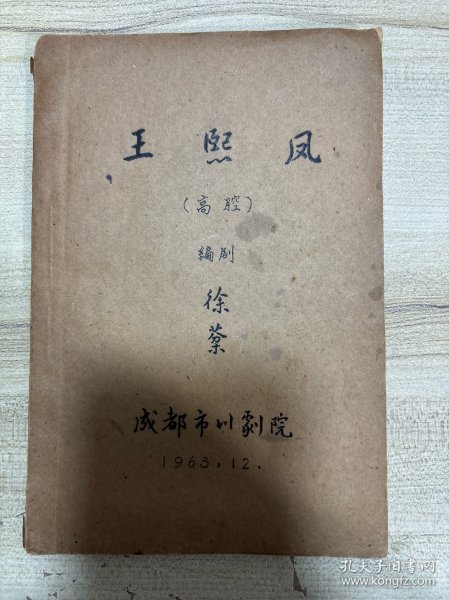 王熙凤
(高腔)
编剧
徐棻
成都市川剧院
1963.12.
孔夫子旧书网
www.kongfz.com